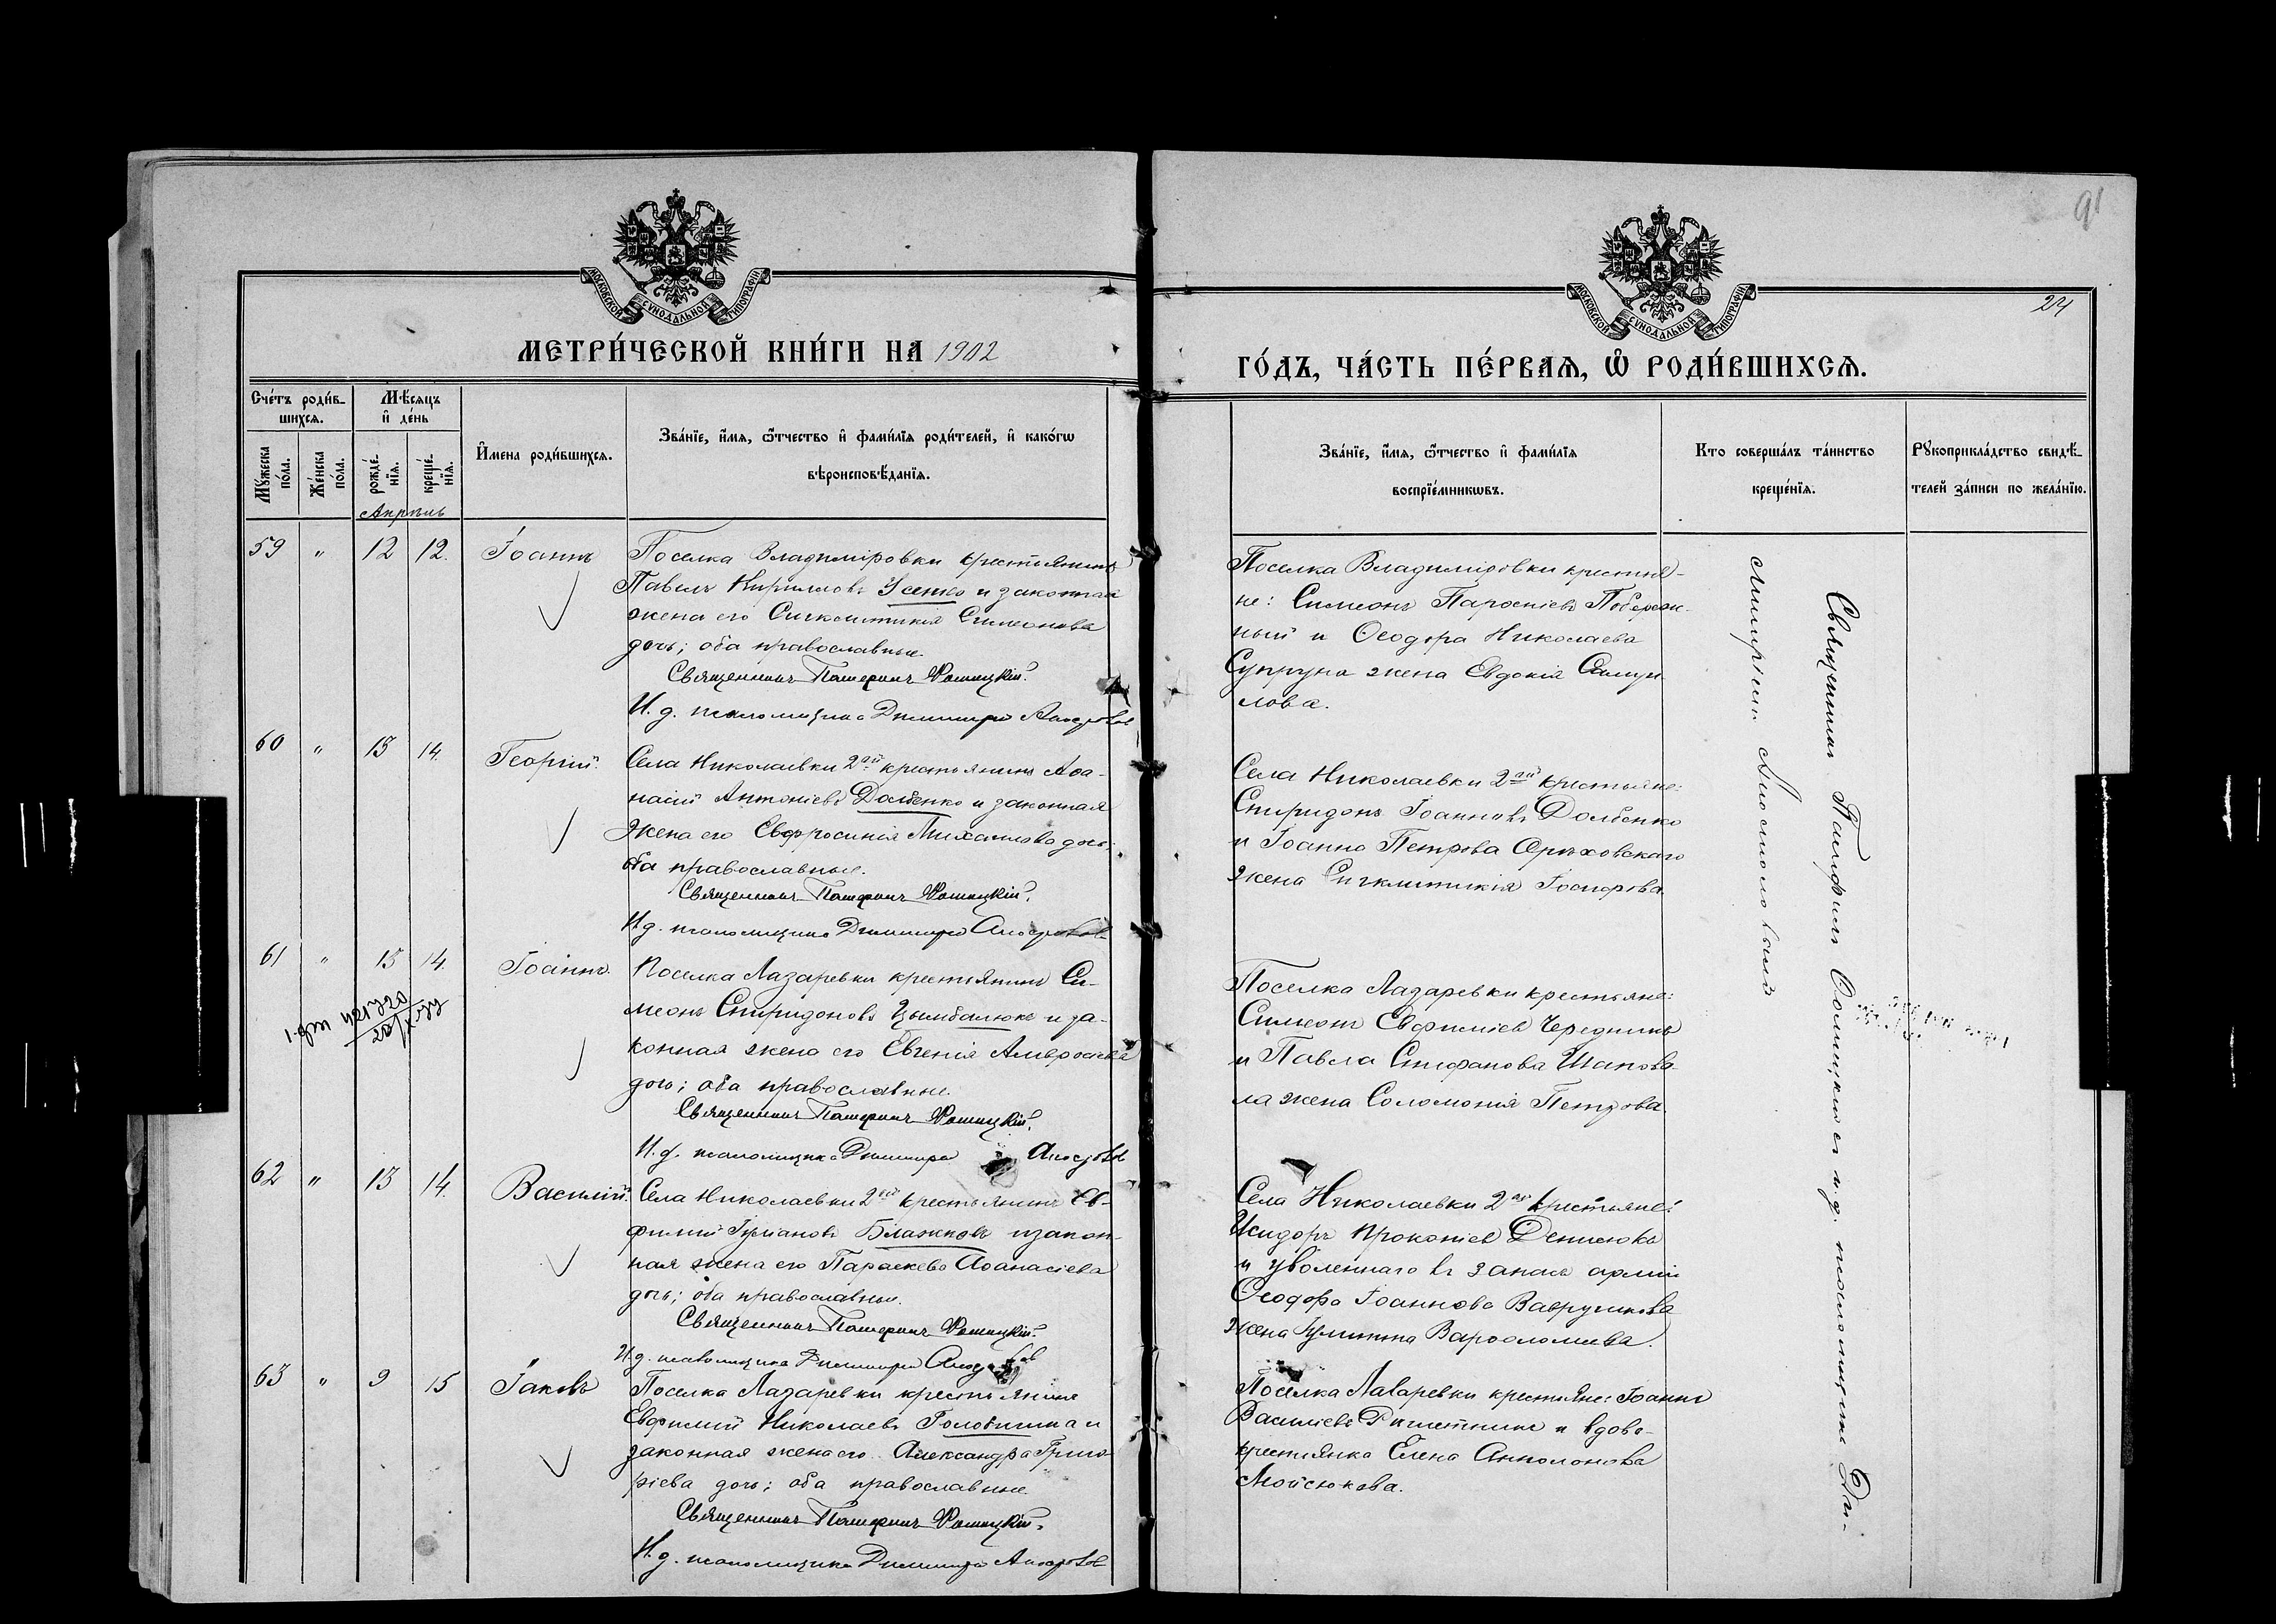 91
24
МОСКОВСКОЙ СѴНОДАЛЬНОЙ ТИПОГРАФІИ
МОСКОВСКОЙ СѴНОДАЛЬНОЙ ТИПОГРАФІИ
МЕТРИ́ЧЕСКОЙ КНИ́ГИ НА 1902
ГО́ДЪ, ЧА́СТЬ ПЕ́РВАѦ, Ѽ РОДИ́ВШИХСѦ.
Сче́тъ роди́в-
шихсѧ.
Мѣсѧцъ
и҆ де́нь
Мꙋ́жеска по́ла.
Же́нска по́ла.
рожде́-
нїѧ.
креще́-
нїѧ.
И҆мена роди́вшихсѧ.
Зва́нїе, и҆́мѧ, ѻ҆́тчество и҆ фами́лїѧ роди́телей, и҆ како́гѡ
вѣроисповѣ́данїѧ.
Зва́нїе, и҆́мѧ, ѻ҆́тчество и҆ фами́лїѧ
воспрїе́мникѡвъ.
Кто соверша́лъ та́инство
креще́нїѧ.
Рꙋкоприкла́дство свидѣ́-
телей за́писи по жела́нїю.
Апрѣль
59 " 12 12. Іоаннъ
Поселка Владиміровки крестьянинъ
Павелъ Кирилловъ Усенко и законная
жена его Синклитикія Симеонова
дочь; оба православные.
Священникъ Памфилъ
И. д. псаломщика Димитрій
Поселка Владиміровки крестья-
не: Симеонъ Побереж-
ный и Ѳеодора Николаева
Супруна жена Евдокія Самуи-
лова.
60 " 13 14. Георгій.
Села Николаевки 2ой крестьянинъ Аѳа-
насій Антоніевъ Долбенко и законная
жена его Евфросинія Михаилова дочь;
оба православные.
Священникъ Памфилъ
И. д. псаломщика Димитрій
Села Николаевки 2ой крестьяне:
Спиридонъ Іоанновъ Долбенко
и Іоанна Петрова Орѣховскаго
жена Синклитикія Іосифова.
61 " 13 14. Іоаннъ.
Поселка Лазаревки крестьянинъ Си-
меонъ Спиридоновъ Цымбалюкъ и за-
конная жена его Евгенія Амвросіева
дочь; оба православные.
Священникъ Памфилъ
И. д. псаломщика Димитрій
Поселка Лазаревки крестьяне:
Симеонъ Евфиміевъ Чередникъ
и Павла Стефанова Шапова-
ла жена Соломонія Петрова.
62 " 13 14. Василій.
Села Николаевки 2ой крестьянинъ Ев-
фимій Іуліановъ Блажковъ и закон-
ная жена его Параскева Аѳанасіева
дочь; оба православные.
Священникъ Памфилъ
И. д. псаломщика Димитрій
Села Николаевки 2ой крестьяне:
Исидоръ Прокопіевъ Денисюкъ
и уволеннаго въ запасъ арміи
Ѳеодора Іоаннова
жена Іулитта Варѳоломеева.
63 " 9 15 Іаковъ
Поселка Лазаревки крестьянинъ
Евфимій Николаевъ и
законная жена его Александра Григо-
ріева дочь; оба православные.
Священникъ Памфилъ
И. д. псаломщика Димитрій
Поселка Лазаревки крестьяне: Іоаннъ
Василіевъ и вдова-
крестьянка Елена
Мойсюкова.
Священникъ Памфилъ съ и. д. псаломщика Ди-
митріемъ